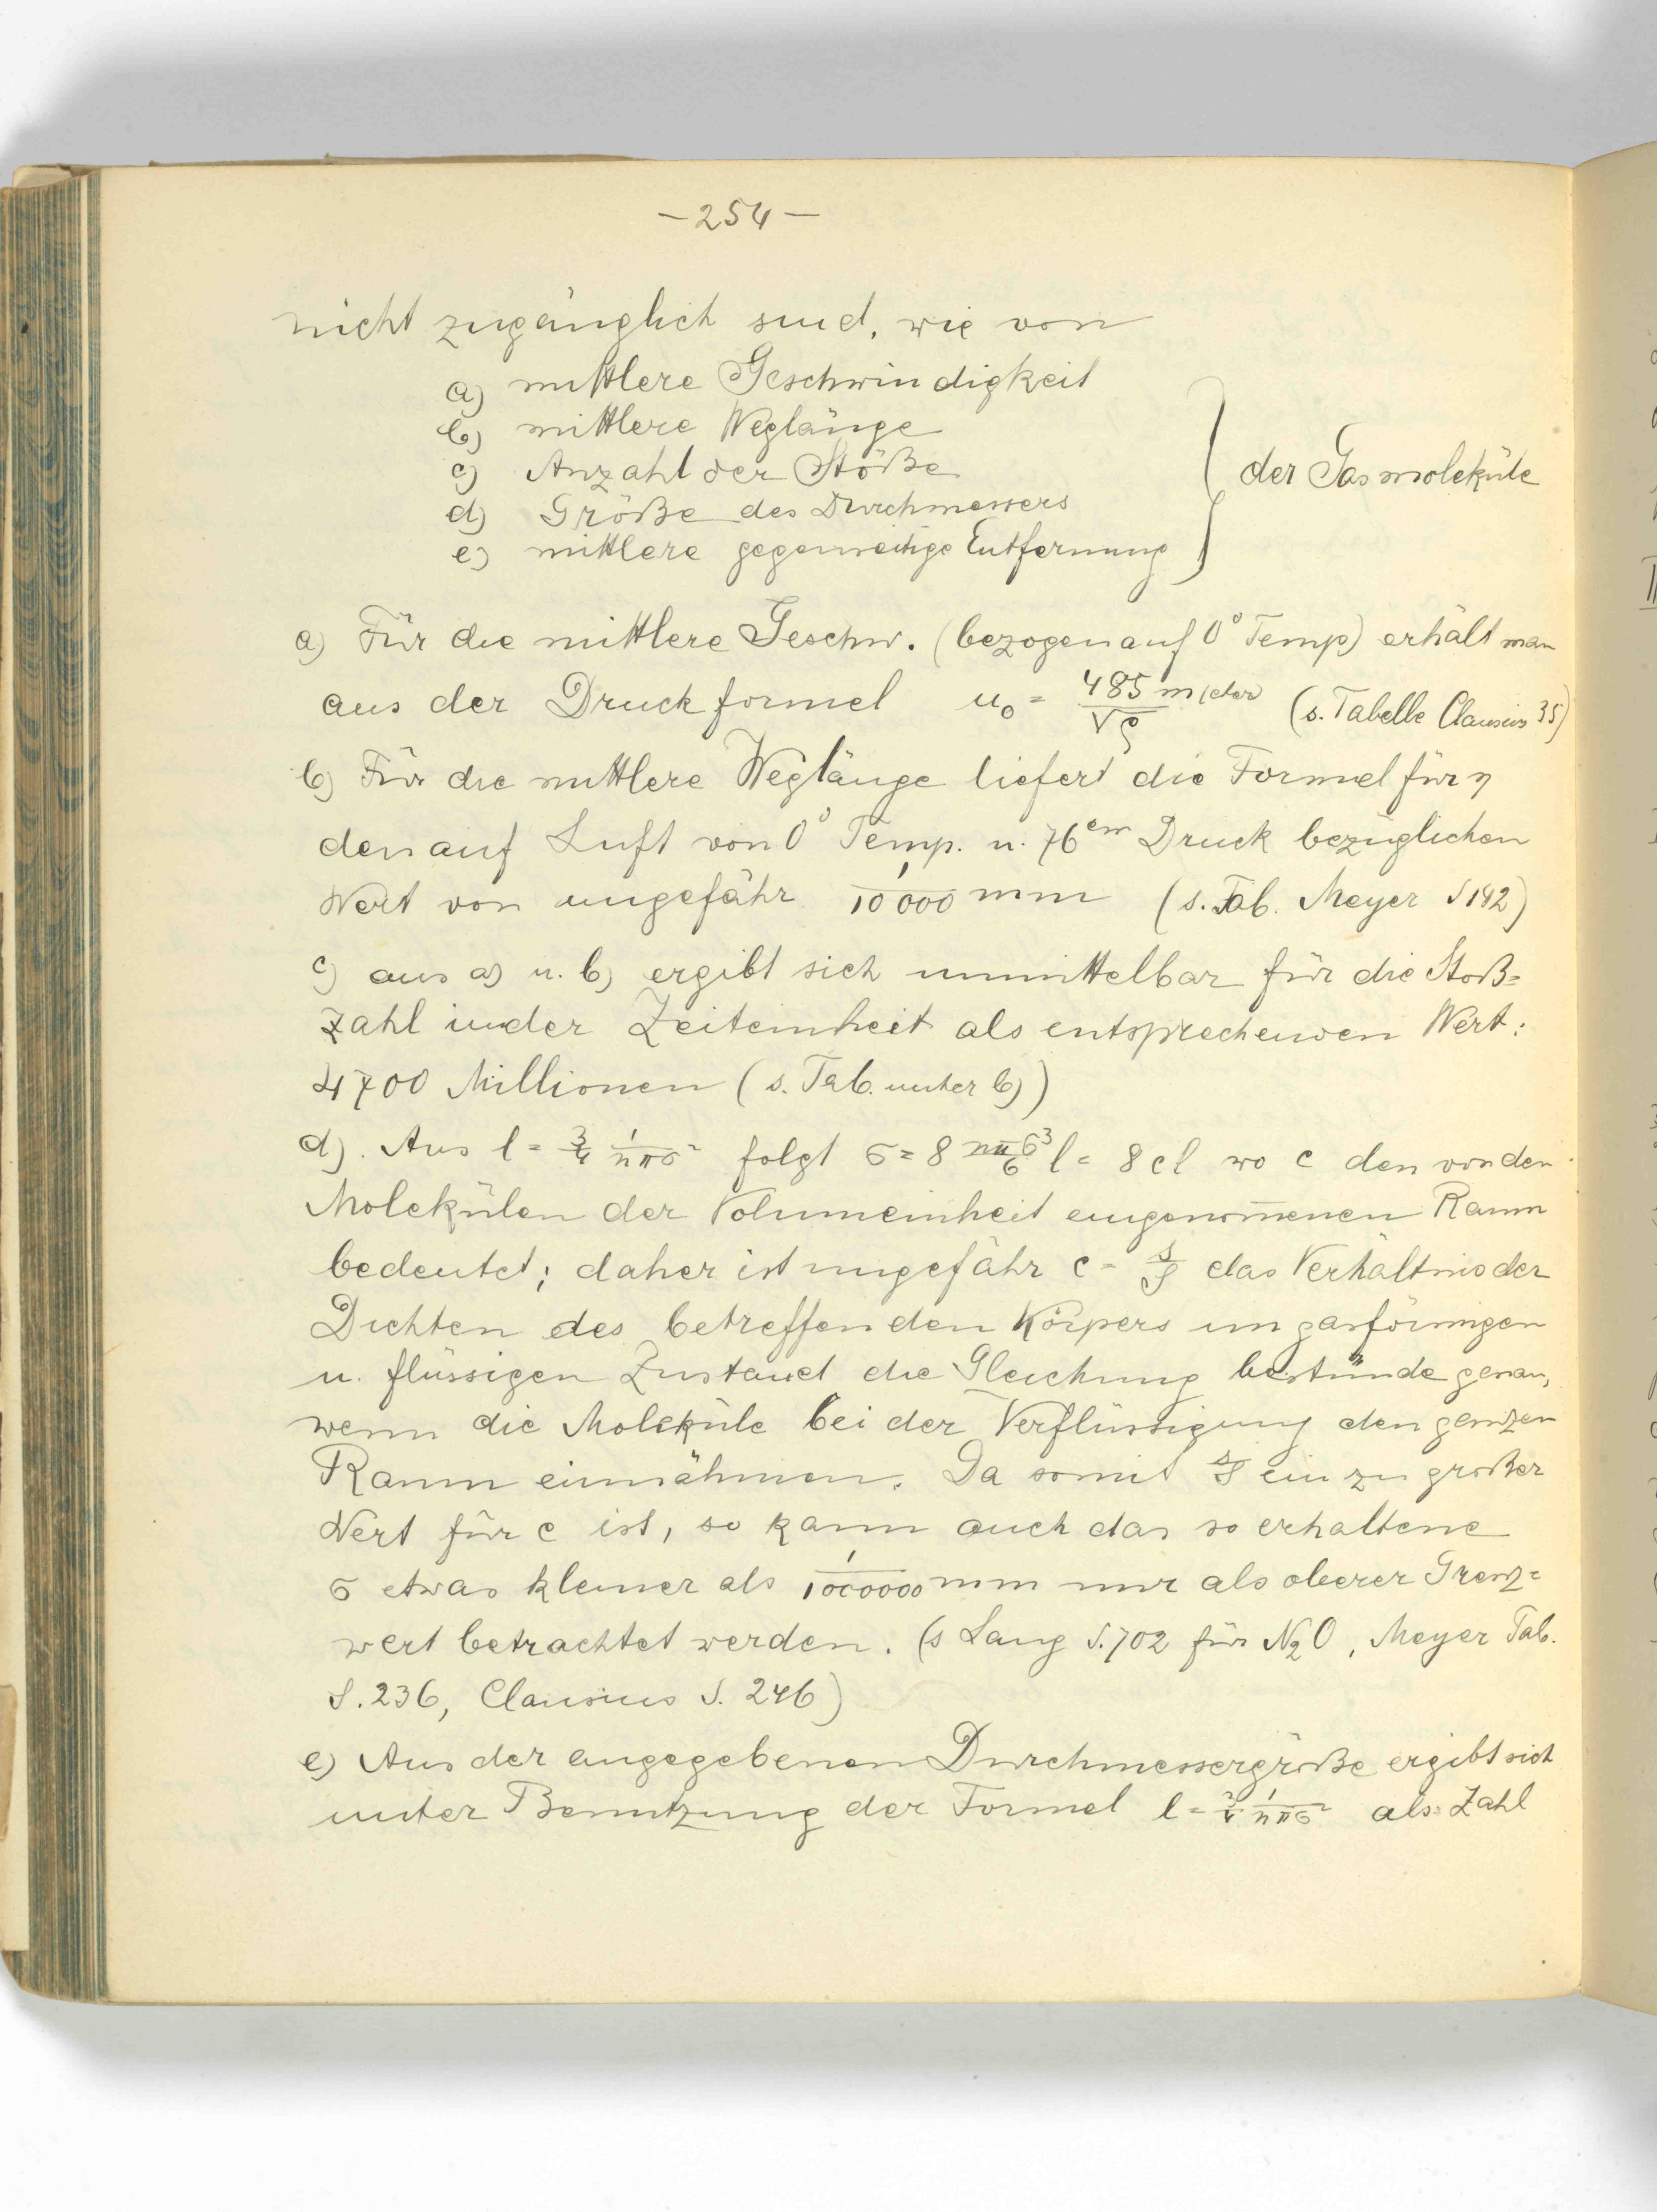 – 254 –
nicht zugänglich sind, wie von
a) mittlere Geschwindigkeit
b) mittlere Weglänge
c) Anzahl der Stöße
d) Größe des Durchmessers
e) mittlere gegenseitige Entfernung
} der Gasmoleküle
a) Für die mittlere Geschw. (bezogen auf 0° Temp) erhält man
aus der Druckformel u₀ = 485 m/√ρ (s. Tabelle Clausius 35)
b) Für die mittlere Weglänge liefert die Formel für η
den auf Luft von 0° Temp. u. 76 cm Druck bezüglichen
Wert von ungefähr 1/10000 mm (s. Tab. Meyer S 142)
c) aus a) u. b) ergibt sich unmittelbar für die Stoß=
zahl in der Zeiteinheit als entsprechenden Wert:
4700 Millionen (s. Tab. unter b))
d). Aus l = 3/4 1/nπσ² folgt σ = 8 nπσ³/6 l = 8 cl wo c den von den
Molekülen der Volumeinheit eingenom̅enen Raum
bedeutet; daher ist ungefähr c = s/S das Verhältnis der
Dichten des betreffenden Körpers im gasförmigen
u. flüssigen Zustand die Gleichung bestünde genau,
wenn die Moleküle bei der Verflüssigung den ganzen
Raum einnähmen. Da somit s/S ein zu großer
Wert für c ist, so kann auch das so erhaltene
σ etwas kleiner als 1/1000000 mm nur als oberer Grenz=
wert betrachtet werden. (s Lang S. 702 für N₂O, Meyer Tab.
S. 236, Clausius S. 246)
e) Aus der angegebenen Durchmessergröße ergibt sich
unter Benutzung der Formel l = 3/4 1/nπσ² als Zahl